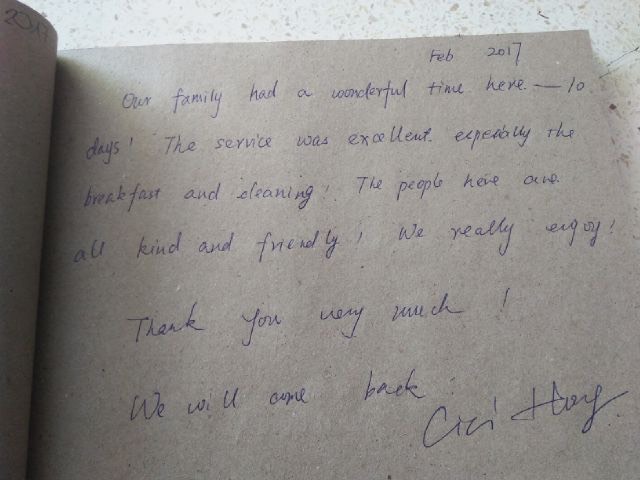 2017
Feb 2017
Our family had a wonderful time here. — 10
days! The service was excellent. especially the
breakfast and cleaning! The people here are
all kind and friendly! We really enjoy!
Thank you very much!
We will come back.
Cici